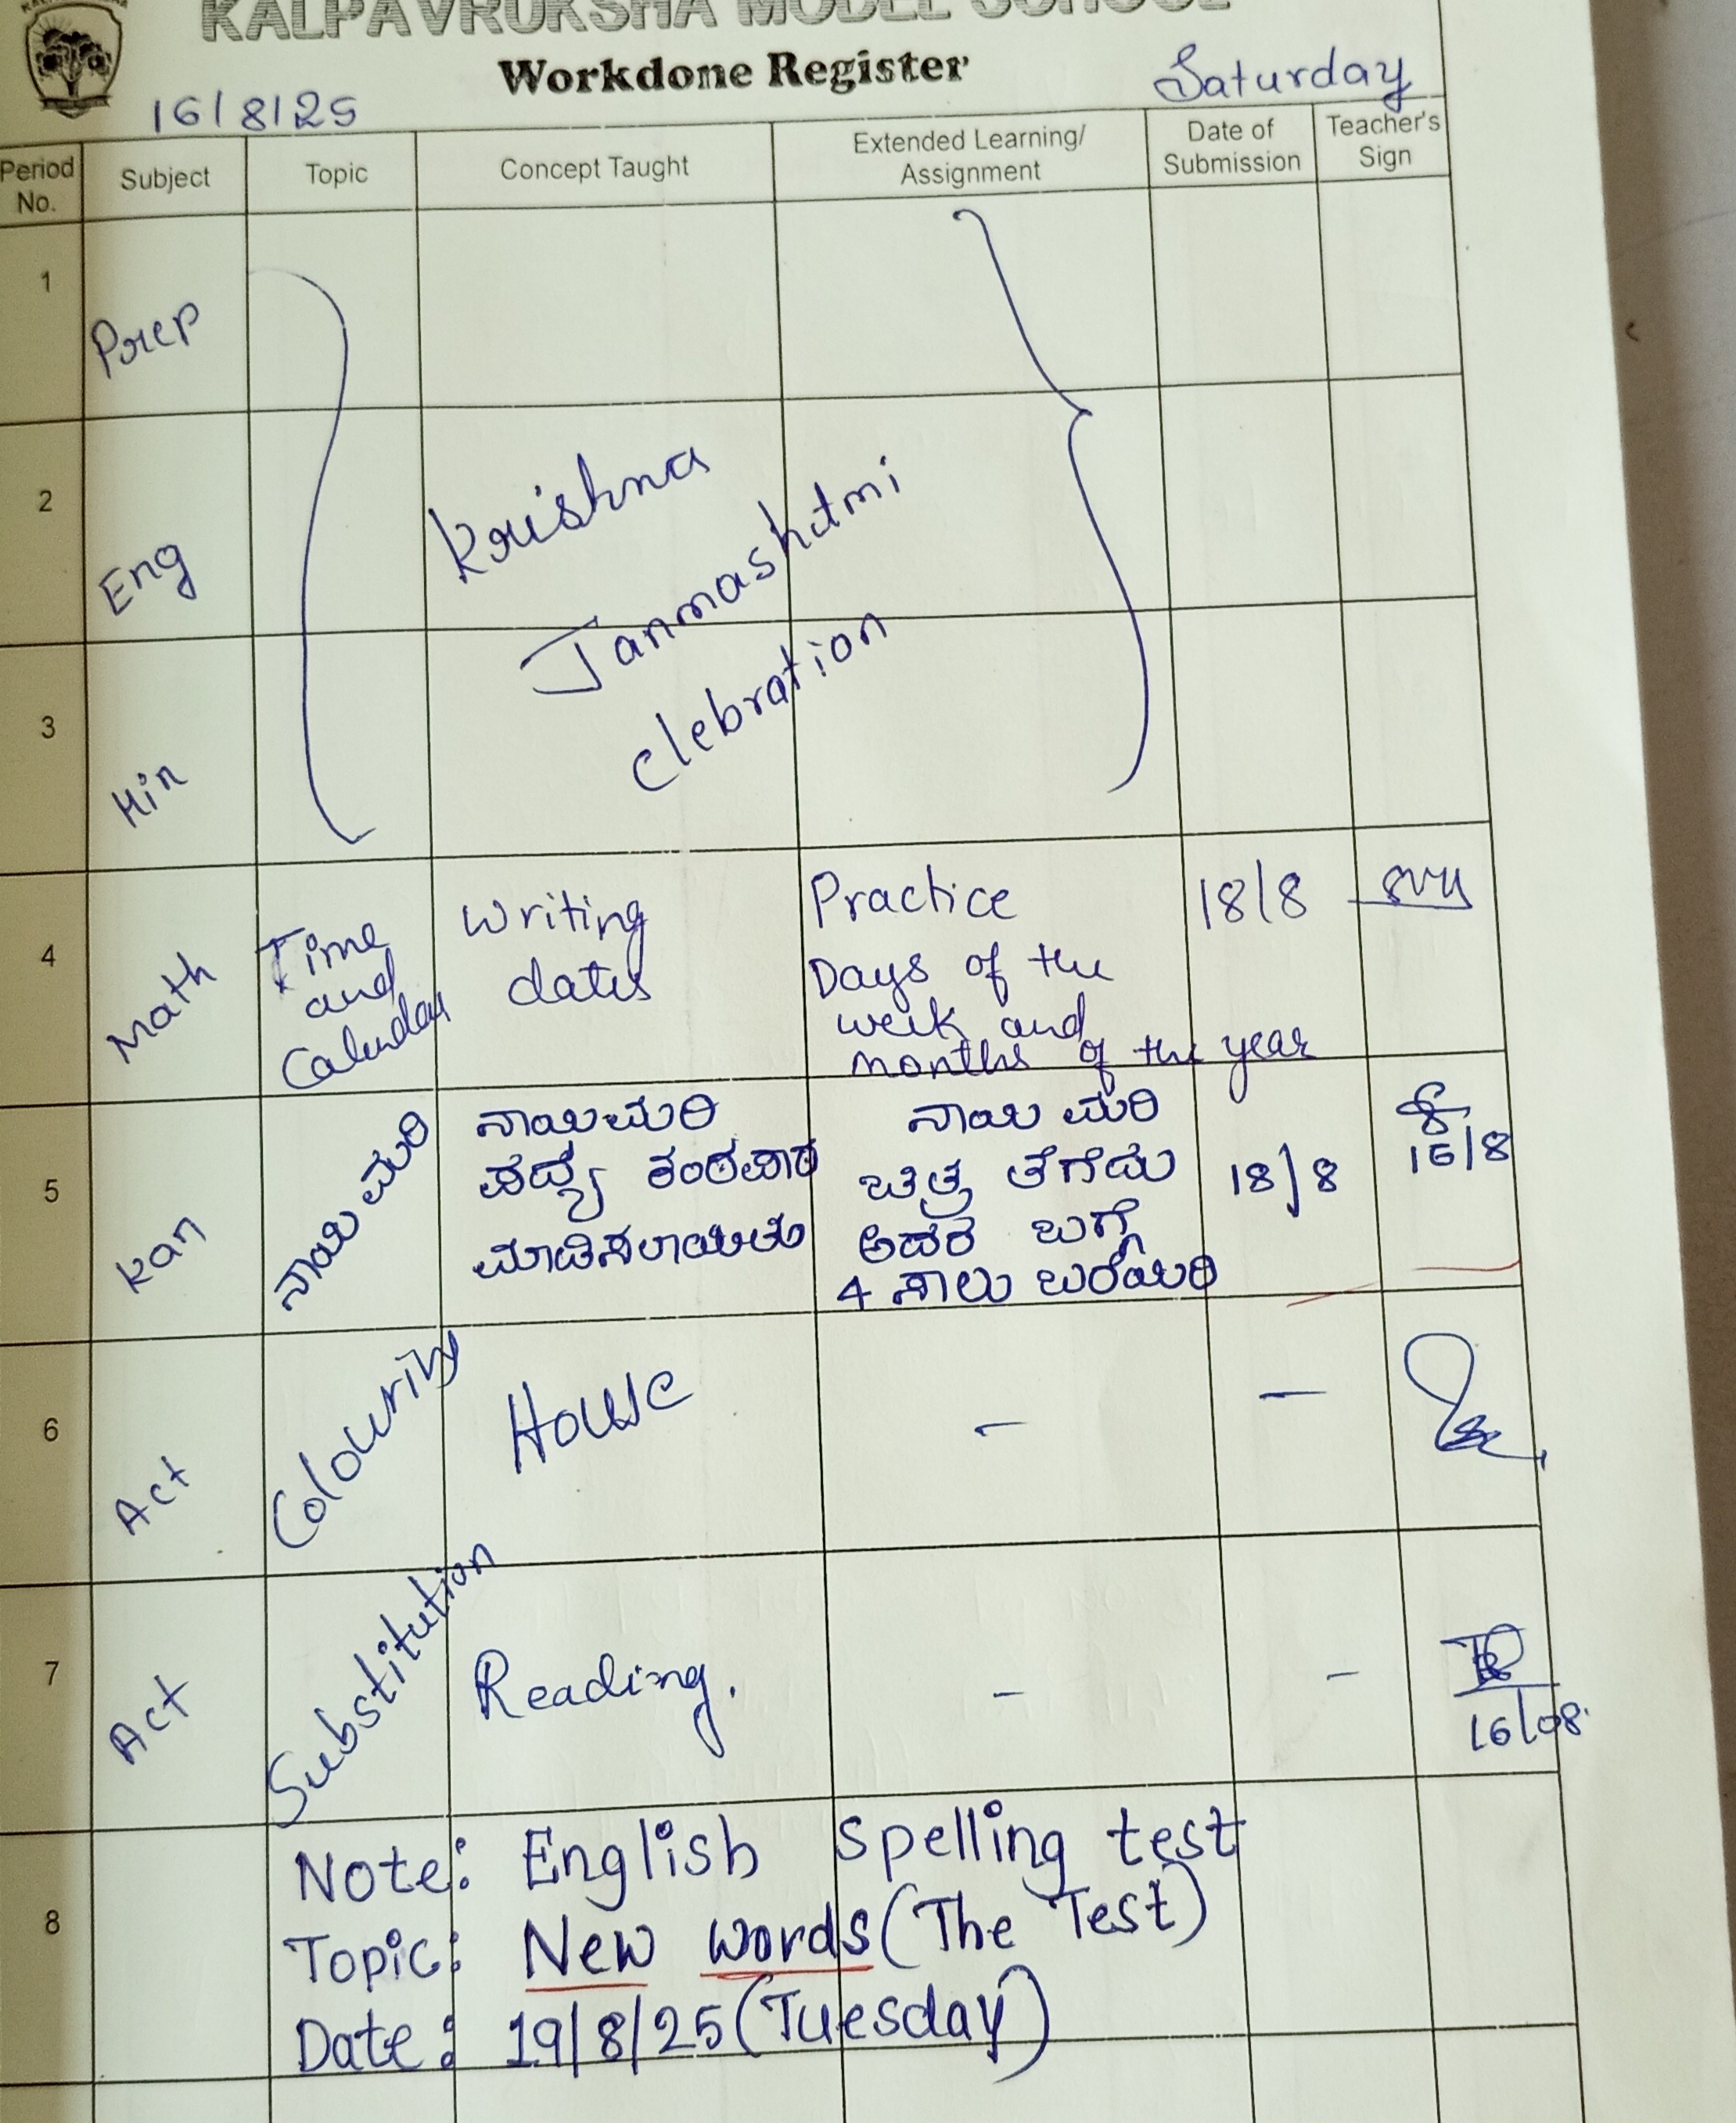 KALPAVRUKSHA MODEL SCHOOL
Workdone Register
16/8/25
Saturday
Period No.
Subject
Topic
Concept Taught
Extended Learning/
Assignment
Date of
Submission
Teacher's
Sign
1
Prep
2
Eng
3
Hin
Krishna
Janmashtmi
clebration
4
Math
Time
and
Calendar
Writing
dates
Practice
Days of the
week and
months of the year
18/8
5
Kan
ನಾಯಿಮರಿ
ನಾಯಿಮರಿ
ಪದ್ಯ ಕಂಠಪಾಠ
ಮಾಡಿಸಲಾಯಿತು
ನಾಯಿ ಮರಿ
ಚಿತ್ರ ತೆಗೆದು
ಅದರ ಬಗ್ಗೆ
4 ಸಾಲು ಬರೆಯಿರಿ
18/8
16/8
6
Act
Colouring
House
-
-
7
Act
Substitution
Reading.
-
-
16/08.
8
Note: English Spelling test
Topic: New words (The Test)
Date: 19/8/25 (Tuesday)